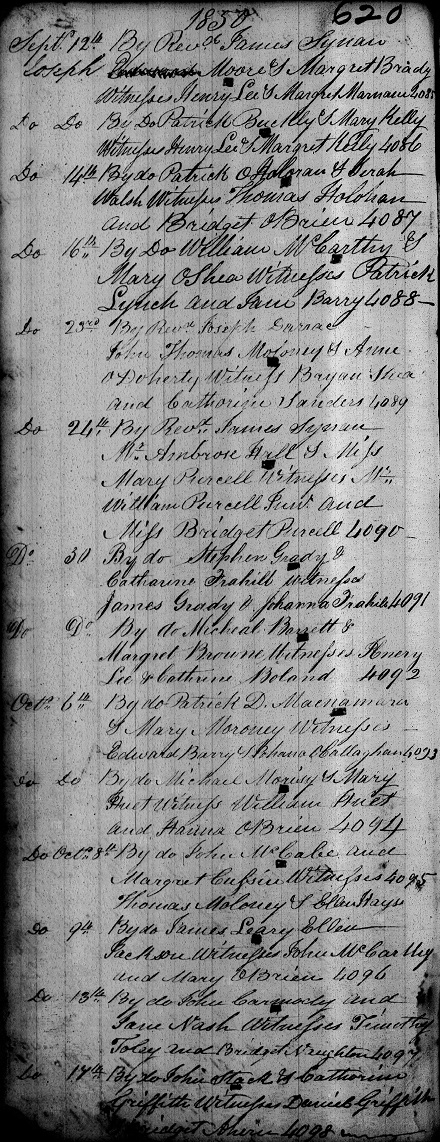 1830 620
Sept. 12th By Revd. James Synan
Joseph Moore & Margret Brady
Witnesses Henry Lee & Margret Marnane 4085
Do Do By Do Patrick Buckly & Mary Kelly
Witnesses Henry Lee & Margret Kelly 4086
Do 14th By do Patrick O Holoran & Serah
Walsh Witness Thomas Holohan
and Bridget OBrien 4087
Do 16th By Do William McCartthy &
Mary OShea Witnesses Patrick
Lynch and Jam Barry 4088
Do 23rd By Revd. Joseph
John Thomas Moloney & Anne
O'Doherty Witness Bryan Shea
and Catherine Sanders 4089
Do 24th By Revd. James Synan
Mr. Ambrose Hall & Miss
Mary Purcell Witnesses Mr.
William Purcell Junr. and
Miss Bridget Purcell 4090
Do 30 By do Stephen Grady &
Catharine Frahill witnesses
James Grady & Johanna Frahill 4091
Do Do By do Micheal Barrett &
Margret Browne Witnesses Henery
Lee & Cathrine Boland 4092
Octr. 6th By do Patrick D. Macnamara
& Mary Moroney Witnesses
Edward Barry & Johana OCallaghan 4093
Do Do By do Michael Morisy & Mary
Huet Witness William Huet
and Hanna OBrien 4094
Do Octr. 8th By do John McCabe and
Margret Cussin Witnesses 4095
Thomas Moloney & Ellen Hays
Do 9th By do James Leary Ellen
Jackson Witnesses John McCarthy
and Mary OBrien 4096
Do 13th By do John Carmody and
Jane Nash Witnesses Timothy
Foley and Bridget Naughton 4097
Do 17th By do John Stack & Catherine
Griffith Witnesses Daniel Griffith
Bridget Ahern 4098